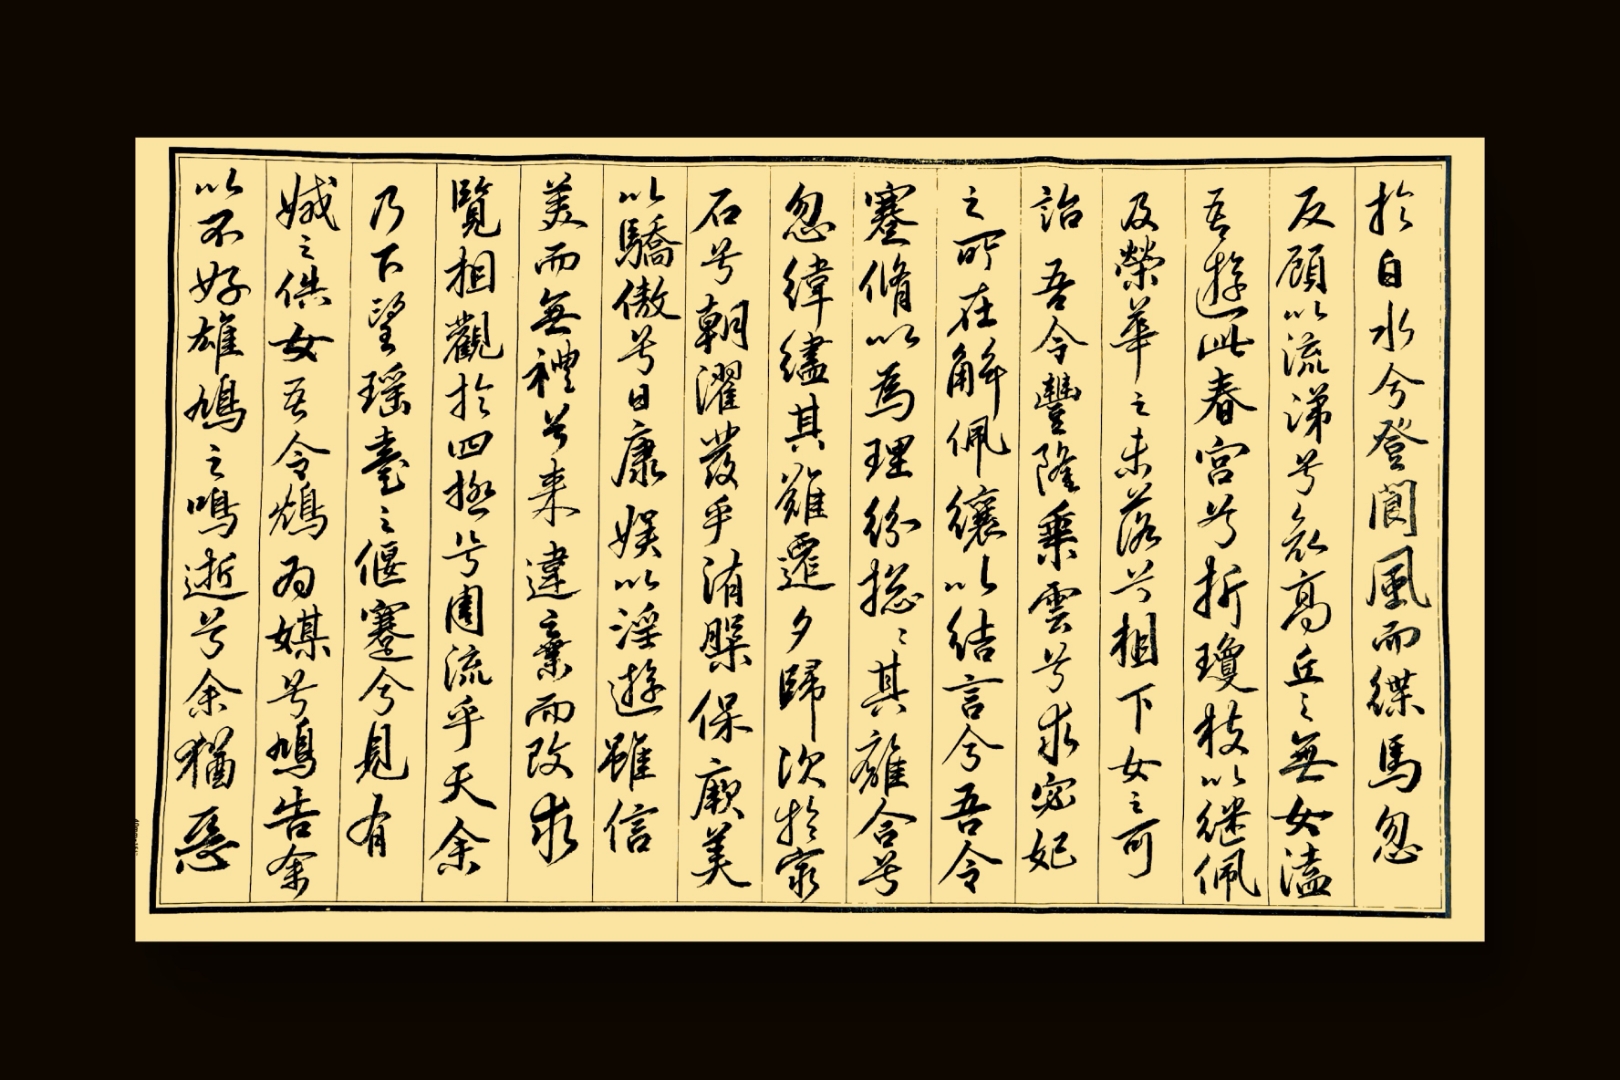 於白水兮登閬風而緤馬忽
反顧以流涕兮哀高丘之無女溘
吾遊此春宮兮折瓊枝以繼佩
及榮華之未落兮相下女之可
詒吾令豐隆乘雲兮求宓妃
之所在解佩纕以結言兮吾令
蹇脩以為理紛揔〻其離合兮
忽緯繣其難遷夕歸次於窮
石兮朝濯髮乎洧槃保厥美
以驕傲兮日康娛以淫遊雖信
美而無禮兮來違棄而改求
覽相觀於四極兮周流乎天余
乃下望瑤臺之偃蹇兮見有
娀之佚女吾令鴆為媒兮鴆告余
以不好雄鳩之鳴逝兮余猶惡